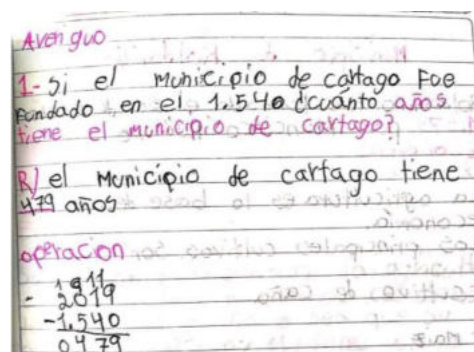 Averiguo
1- Si el Municipio de cartago Foe
Fondado en el 1.540 ¿cuánto años
tiene el municipio de cartago?
R/ el Municipio de cartago tiene
479 años
operacion
1911
- 2019
-1.540
0479